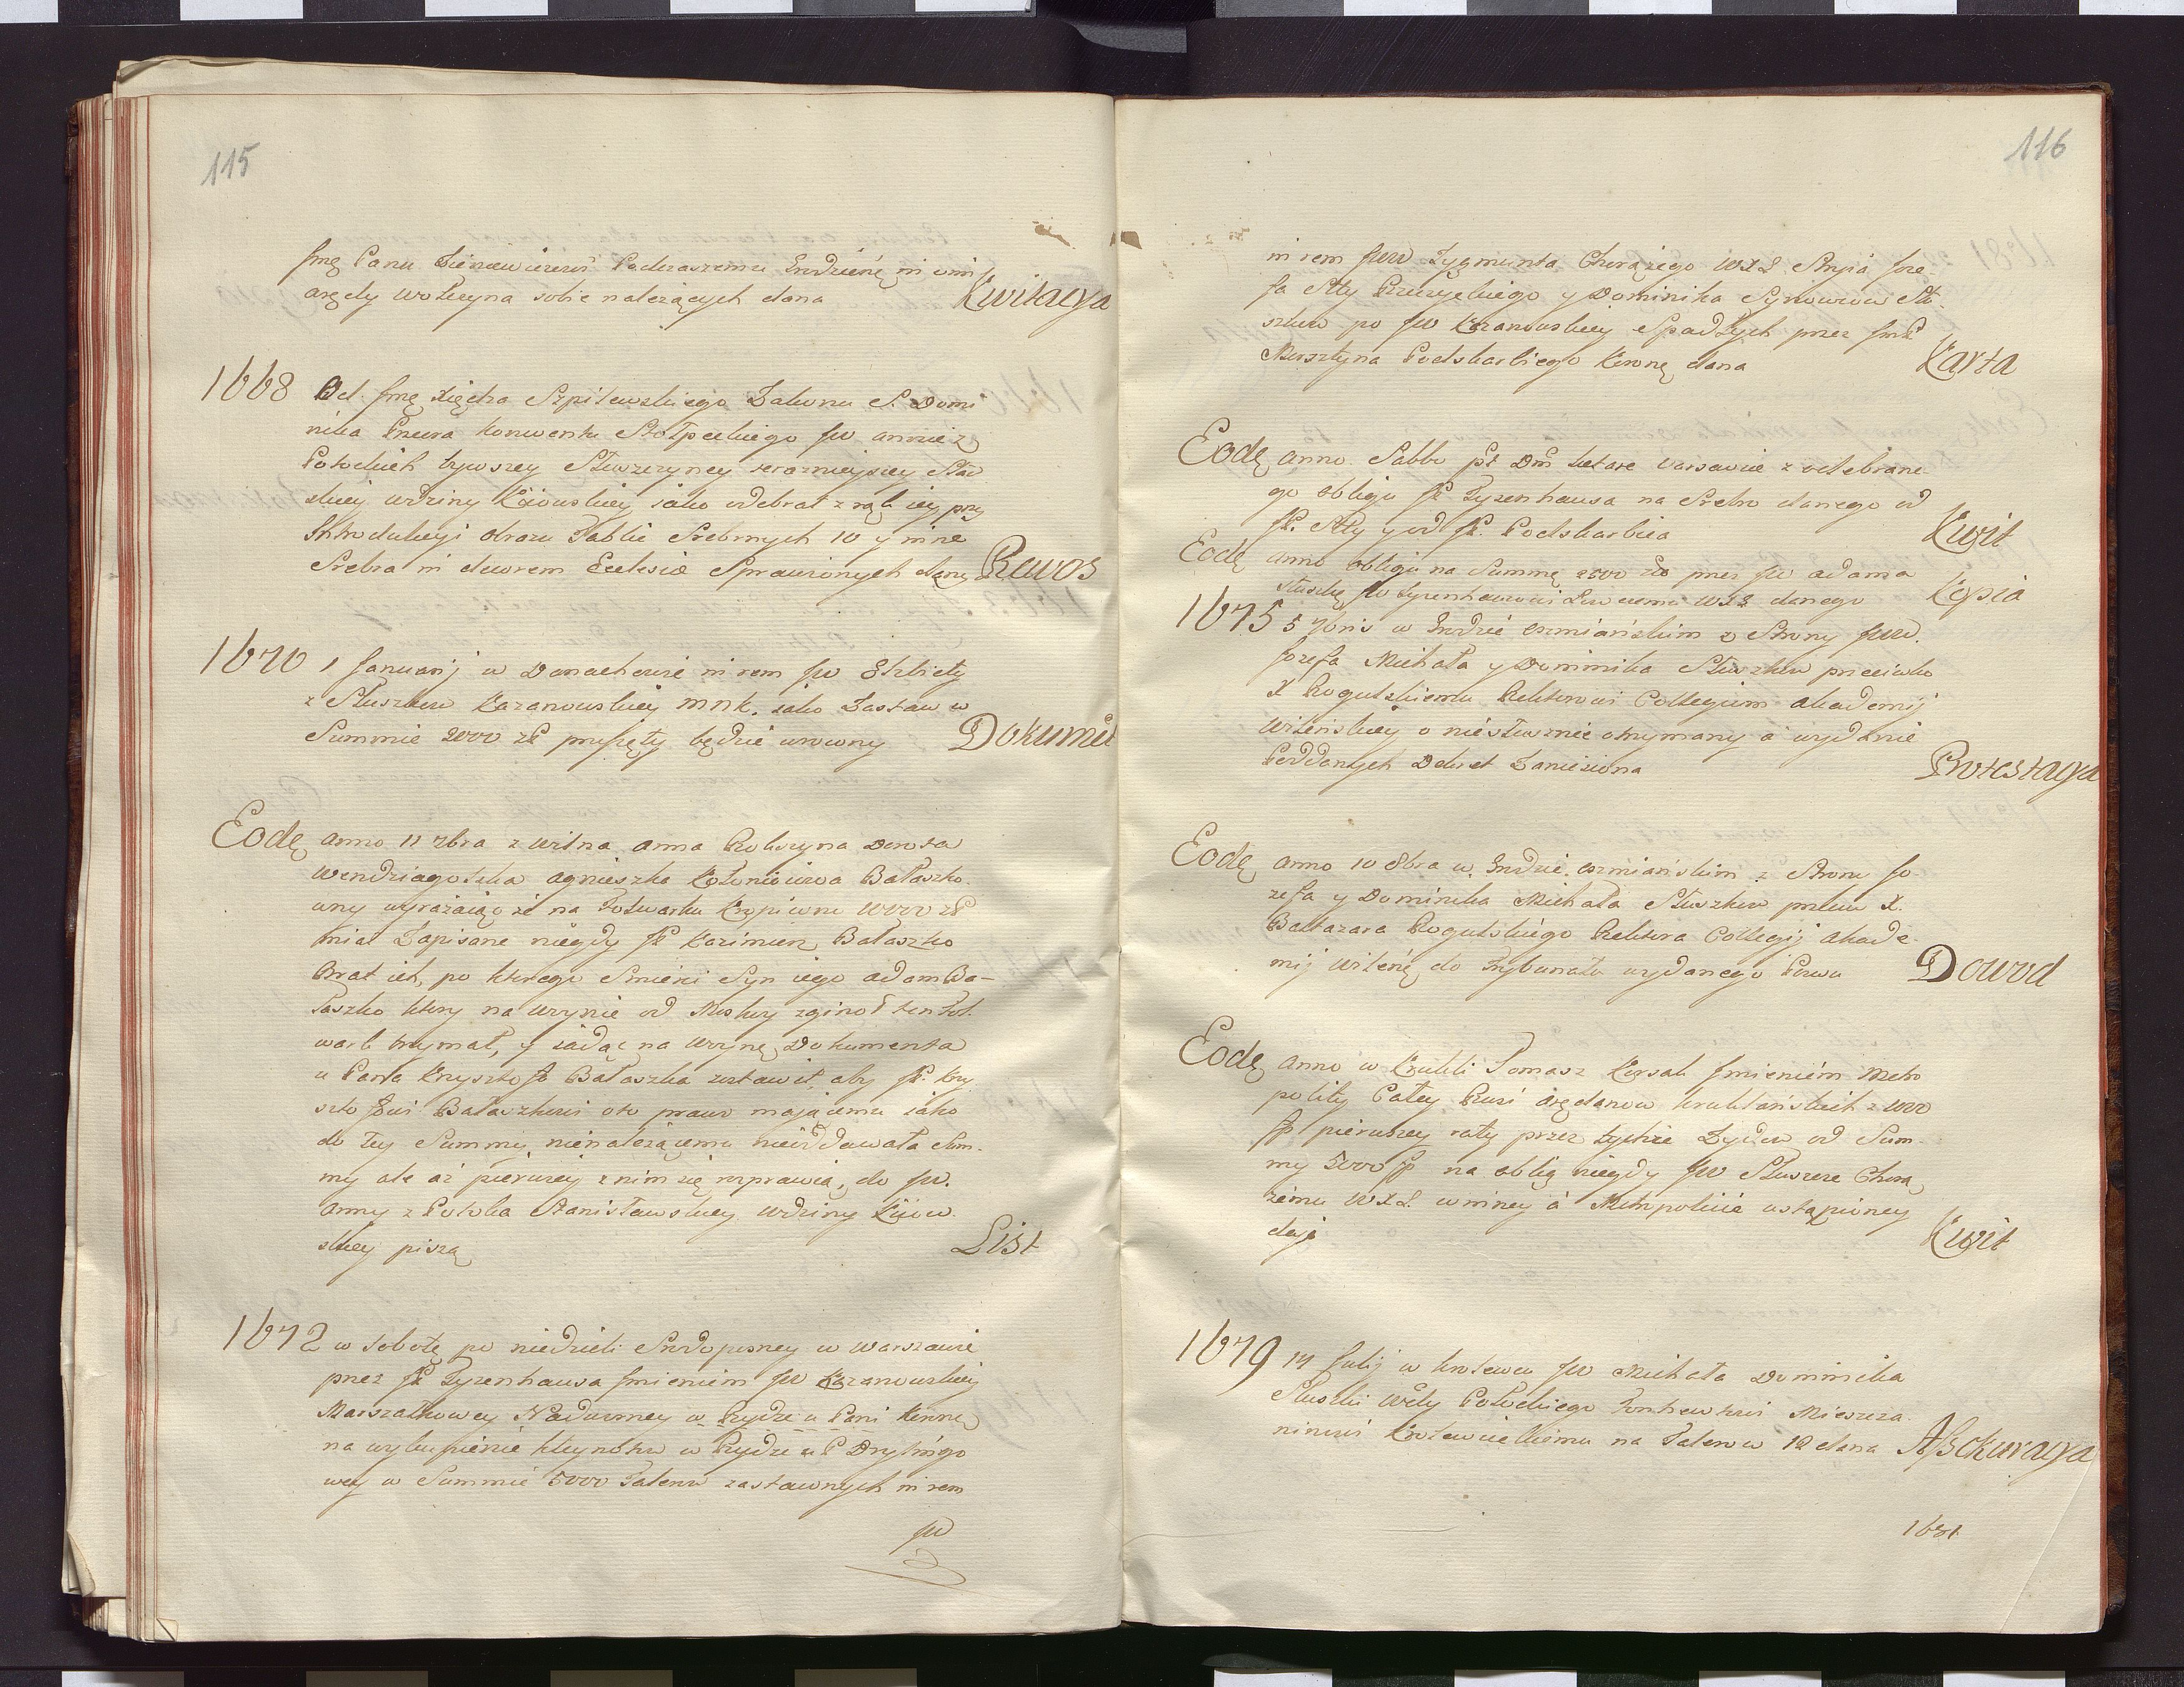 115
Jmę Panu Zieniewiczowi Podczaszemu Grodzień, in vim
arędy Wołczyna sobie należących dana Kwitacya
1668 Od Jmę Xiędza Szpilewskiego Zakonu S. Domi
nika Przeora Konwentu Stołpeckiego JW annie z
Potockich bywszey Słuszczyney teraznieyszey Sta
skiey wdziny Kijowskiey iako odebrał z rąk iey przy
Introdukcyi obrazu Tablic Srebrnych 10 y inne
Srebra in decorem Eclesiæ Sprawionych dany Rewos
1670 1 Januarij w Donachowie in rem JW Elzbiety
z Słuszkow Kazanowskiey MNK. iako Zastaw w
Summie 2000 zł przyięty będzie wrocony Dokumēt
Eodę anno 11 7bra z Wilna anna Robczyna Dorota
Wendziagolska agnieszka Kotoniiowa Bałaszko
wny wyrażaiąc że na Folwarku Kropiwni 10000 zł
miał Zapisane niegdy JP Kazimierz Bałaszko
Brat ich, po ktorego Smierci Syn iego adam Ba-
łaszko ktory na woynie od Moskwy zginoł ten Fol.
wark trzymał, y iadąc na woynę, Dokumenta
u Pana Krysztofa Bałaszka zostawił, aby JP. Kry
sztofowi Bałaszkowi oto prawo maiącemu iako
do tey Summy nienależącemu nieoddawała Sum.
my ale aż pierwiey z nim się rozprawią, do JW.
anny z Potoka Stanisławskiey wdziny Kiiow.
skiey piszą List
1672 w sobotę po niedzieli Srodopostney w Warszawie
przez JP Tyzenhauza Jmieniem JW Kazanowskiey
Marszałkowey Nadworney w Rydze u Pani Kenne,
na wykupienie kleynotow w Rydze u P Drylingo
wey w Summie 5000 Talerow zastawnych in rem
JW
116
in rem JWW Zygmunta Chorążego WXL Stryia Joze-
fa Stty Rzeczyckiego y Dominika Synowcow Słu
szkow po JW Kazanowskiey Spadłych przez JmP
Morsztyna Podskarbiego Koronę dana Karta
Eodę anno Sabbo pt Dm̄ Lætare Varsaviæ z odebrane-
go obligu JP Tyzenhauza na Srebro danego od
JP. Stty y od JP. Podskarbica Kwit
Eodę anno obligu na Summę 2500 zło przez JW adama
Słuszkę JW Tyzenhauzowi Łowczemu WXL danego Kopia
1675 5 7bris w Grodzie oszmiańskim z Strony JWW.
Jozefa Michała y Dominika Słuszkow przeciwko
X Rogulskiemu Rektorowi Collegium akademij
Wileńskiey o niesłusznie otrzymany o wydanie
Poddanych Dekret Zaniesiona Protestacya
Eodę anno 10 8bra w Grodzie oszmiańskim z Strony Jo-
zefa y Dominika Michała Słuszkow przeciw X.
Baltazara Rogulskiego Rektora Collegij akade-
mij Wileńę, do Trybunału wydanego Pozwu Dowod
Eodę anno w Krukli Tomasz Korsak Jmieniem Metro
polity Całey Rusi arędarzow kruklańskich z 1000
fp pierwszey raty przez tychże Zydow od Sum-
my 5000 fp na oblig niegdy JW Słuszce Chorą
żemu WXL winney a Metropolicie ustąpioney
daję Kwit
1679 14 Julij w krolewcu JW Michała Dominika
Słuszki Wdy Połockiego Fontewtowi Mieszcza-
ninowi Krolewieckiemu na Talerow 12 dana Assekuracya
1681